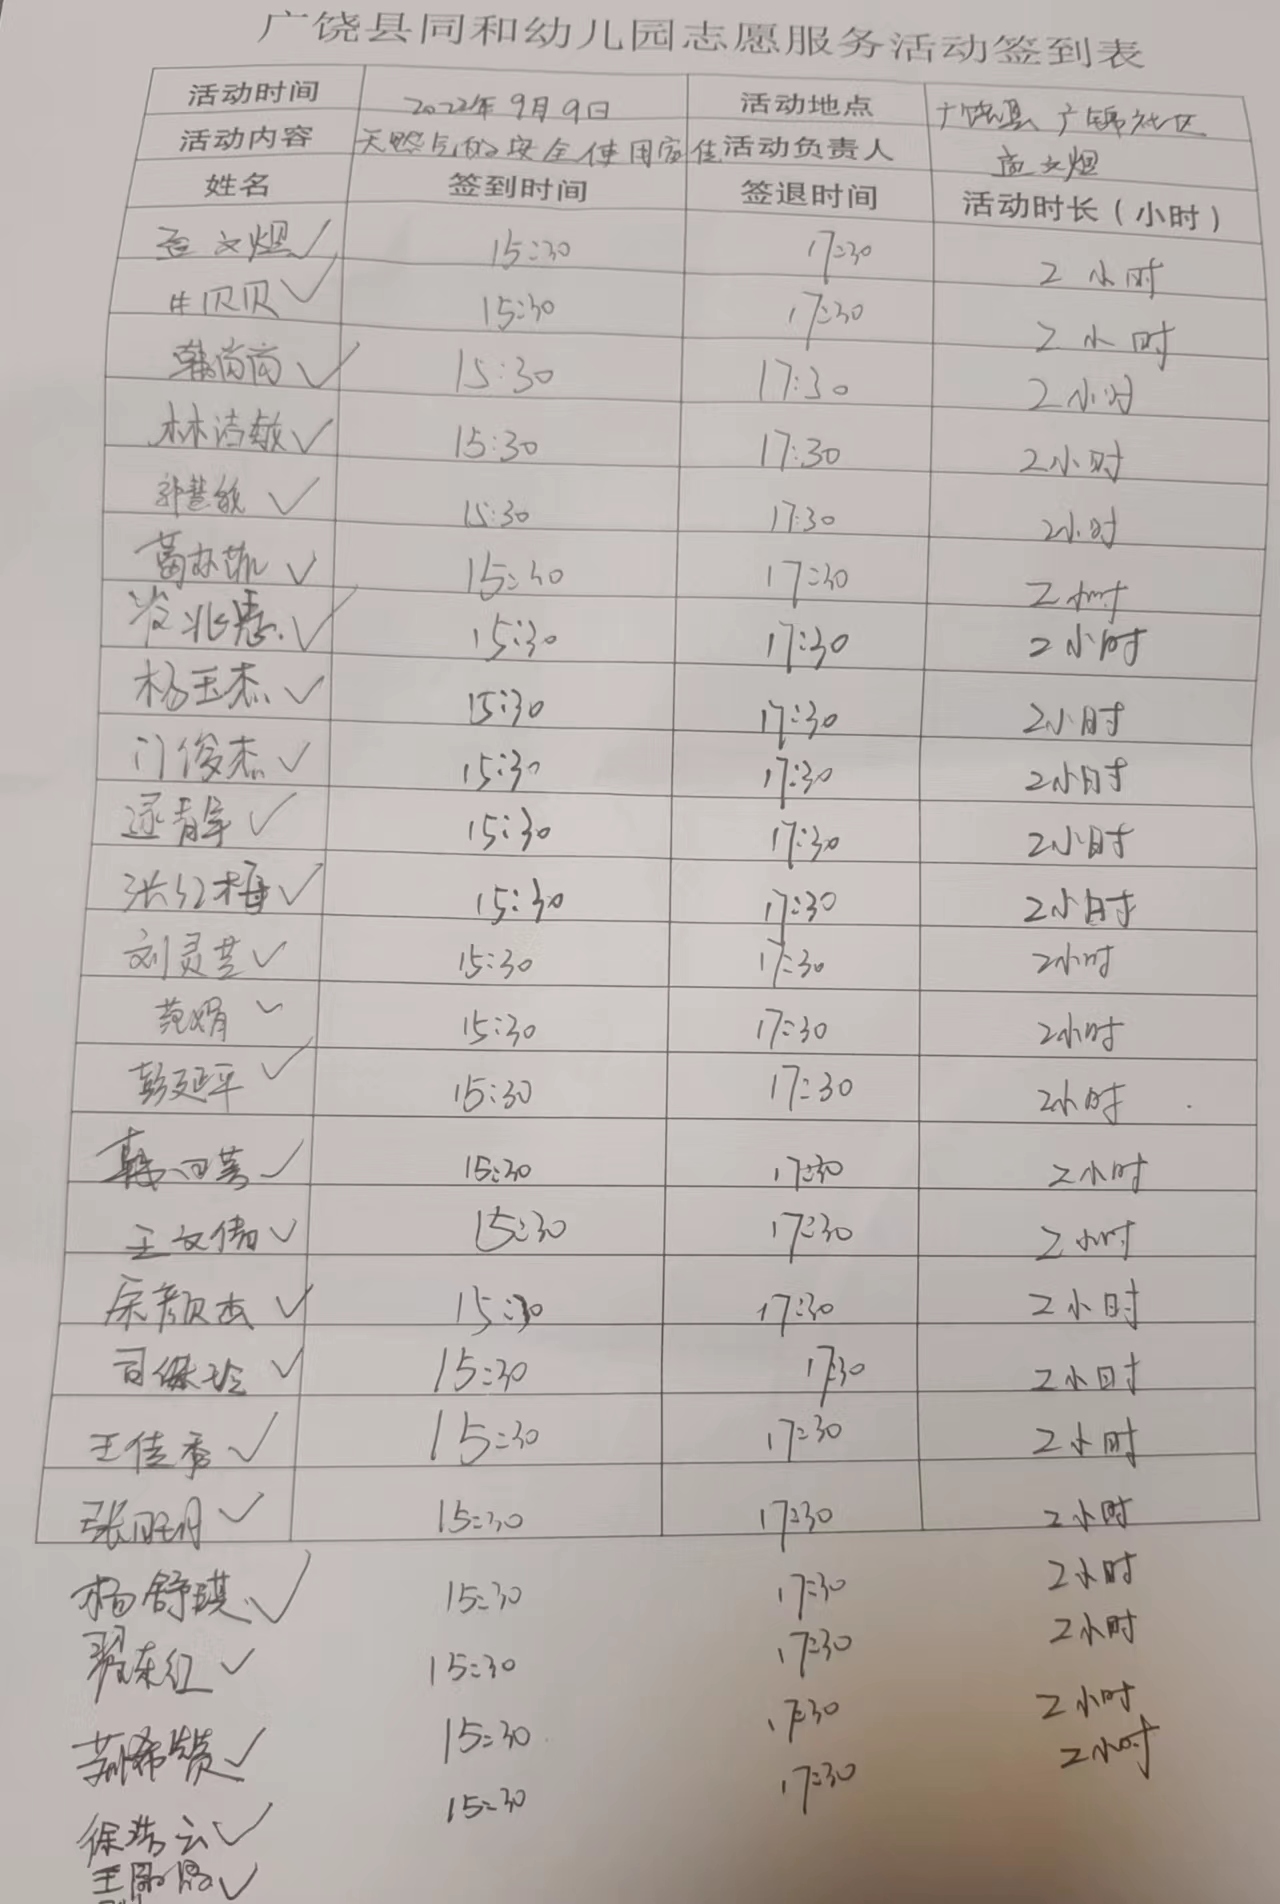 广饶县同和幼儿园志愿服务活动签到表
活动时间 2022年9月9日 活动地点 广饶县广锦社区
活动内容 天然气的安全使用宣传 活动负责人 孟文煜
姓名 签到时间 签退时间 活动时长（小时）
孟文煜✓ 15:30 17:30 2小时
牛贝贝✓ 15:30 17:30 2小时
韩尚尚✓ 15:30 17:30 2小时
林洁敏✓ 15:30 17:30 2小时
郭慧敏✓ 15:30 17:30 2小时
葛亦菲✓ 15:30 17:30 2小时
✓ 15:30 17:30 2小时
杨玉杰✓ 15:30 17:30 2小时
门俊杰✓ 15:30 17:30 2小时
逯青军✓ 15:30 17:30 2小时
张红梅✓ 15:30 17:30 2小时
刘灵芝✓ 15:30 17:30 2小时
范娟✓ 15:30 17:30 2小时
彭延平✓ 15:30 17:30 2小时
✓ 15:30 17:30 2小时
王文倩✓ 15:30 17:30 2小时
✓ 15:30 17:30 2小时
✓ 15:30 17:30 2小时
王佳秀✓ 15:30 17:30 2小时
张旺月✓ 15:30 17:30 2小时
杨舒琪✓ 15:30 17:30 2小时
翟东红✓ 15:30 17:30 2小时
✓ 15:30 17:30 2小时
徐浩云✓ 15:30 17:30 2小时
✓